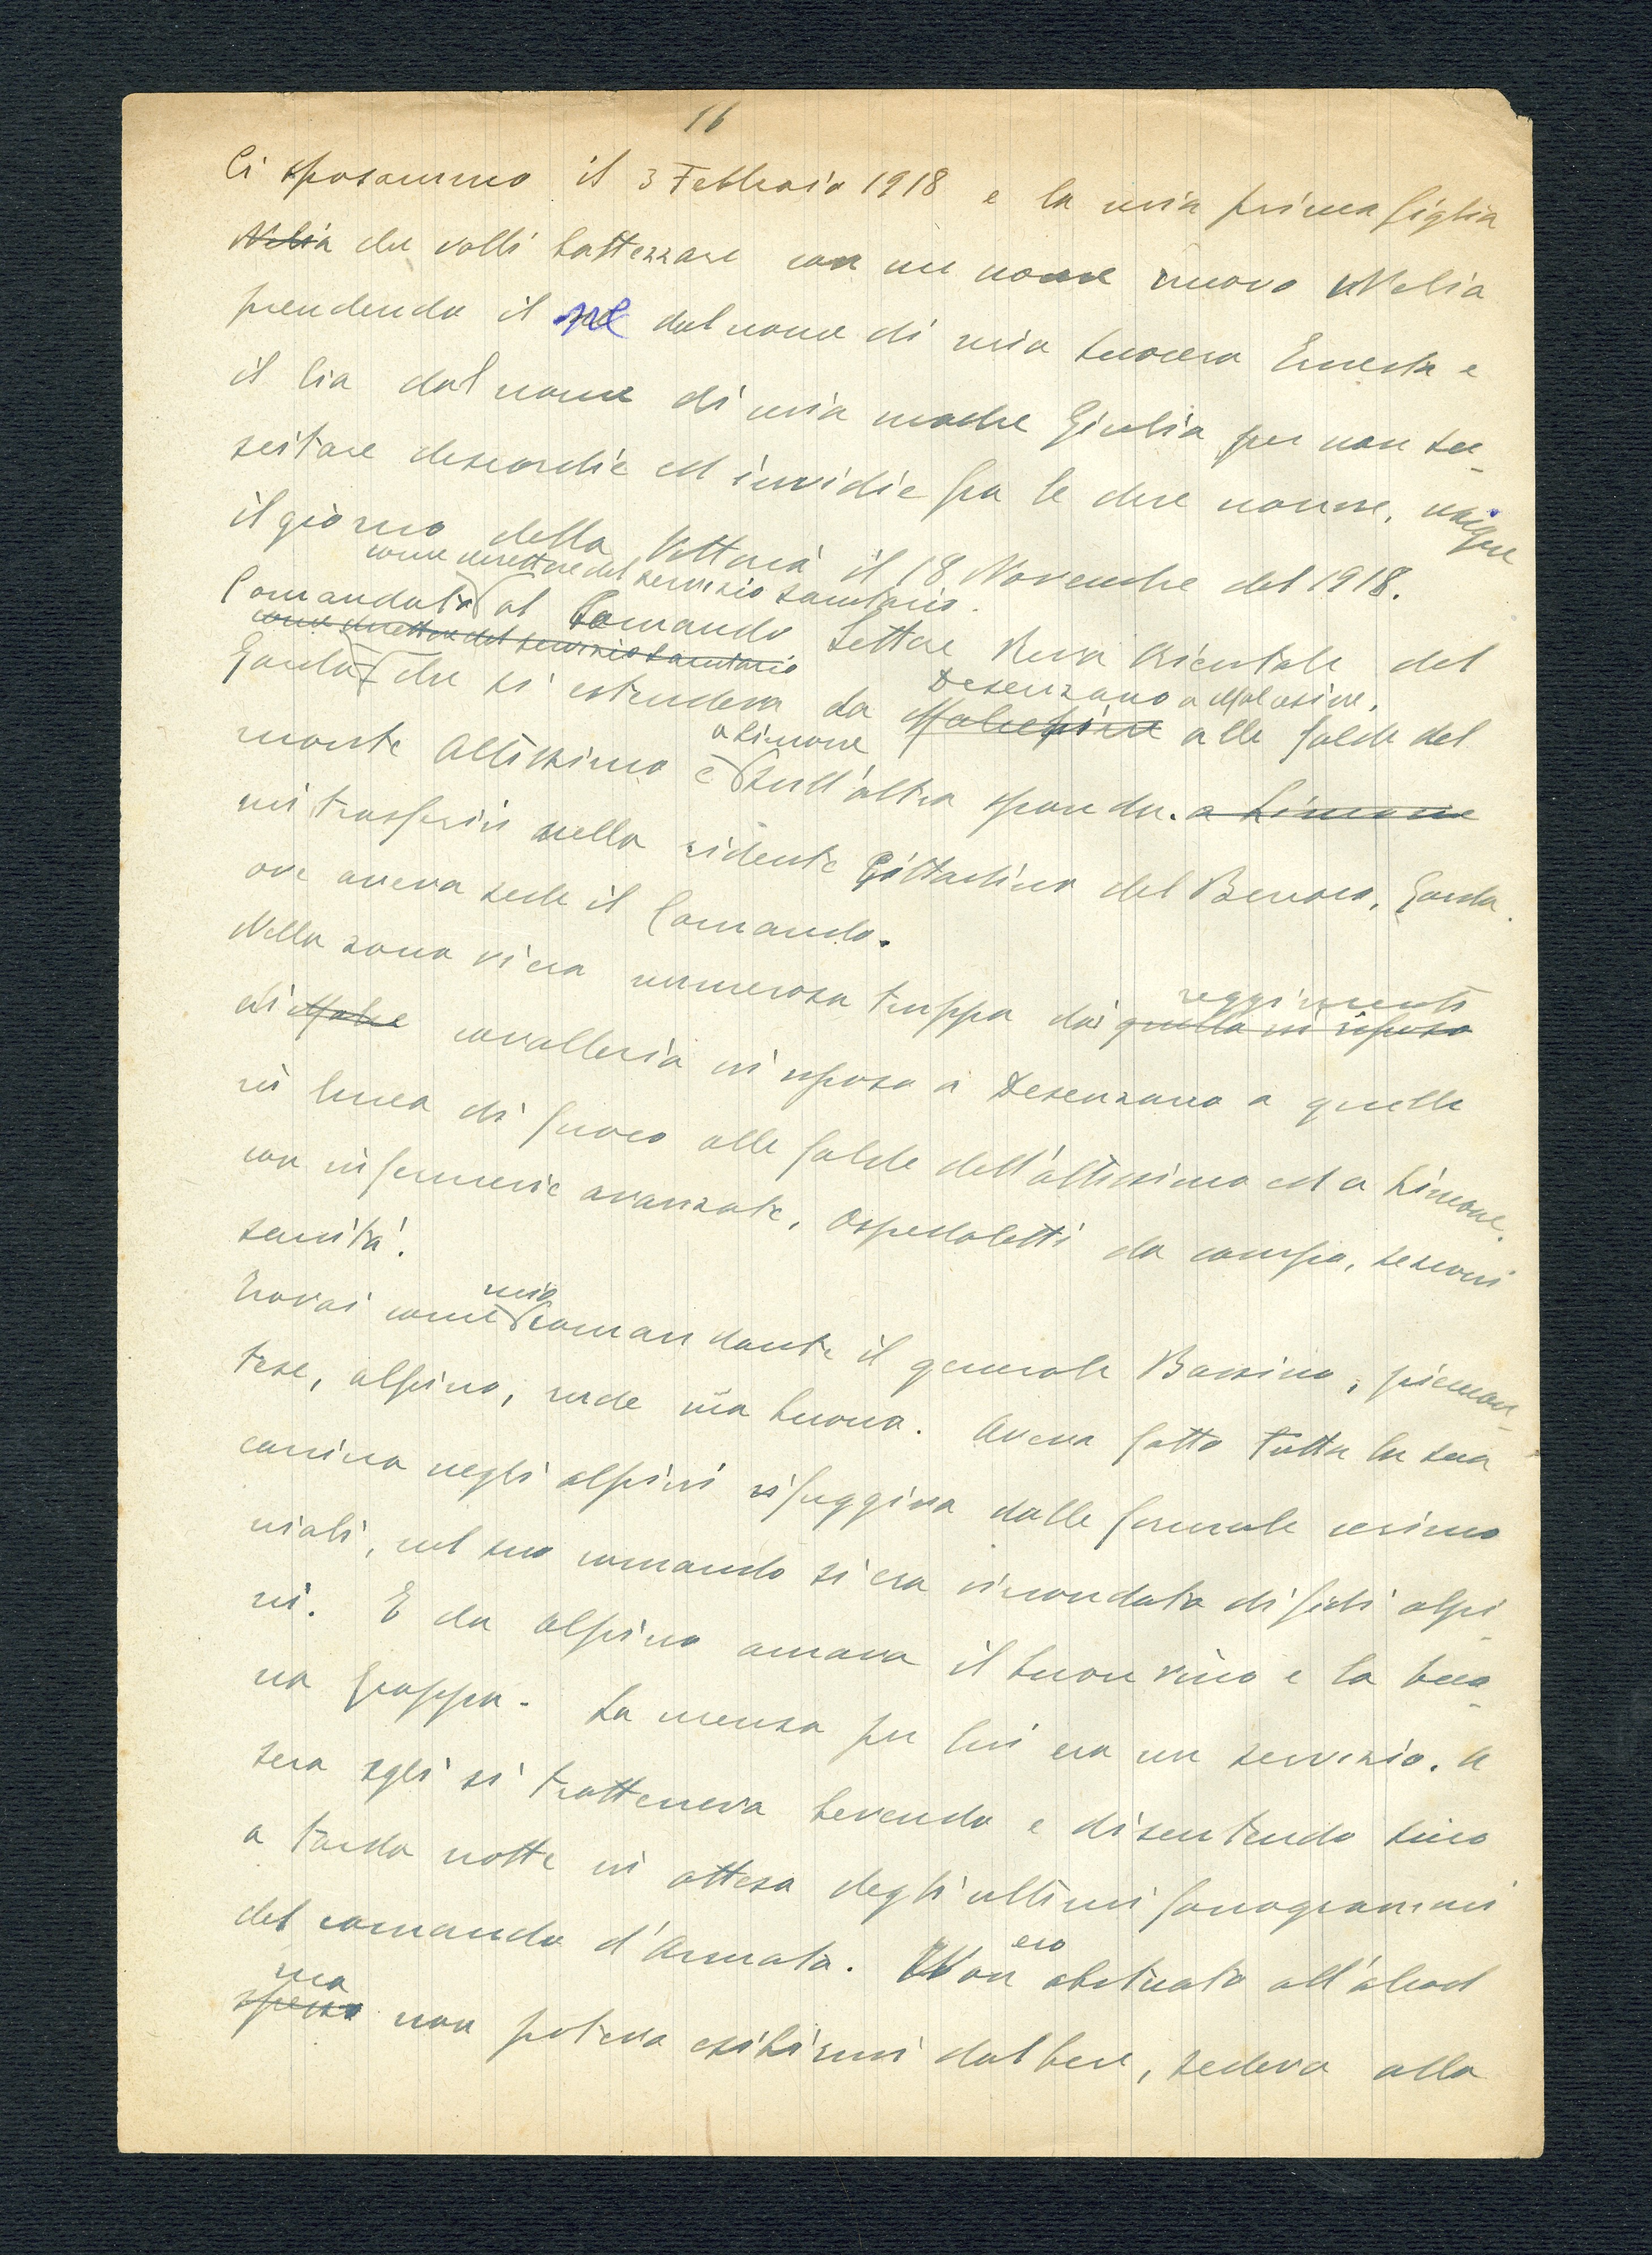 16
Ci sposammo il 3 Febbraio 1918 e la mia prima figlia
Nelia che volli battezzare con un nome nuovo Nelia
prendendo il ne dal nome di mia suocera Ernesta e
il lia dal nome di mia madre Giulia per non su-
scitare discordie ed invidie fra le due nonne, nacque
il giorno della Vittoria il 18 Novembre del 1918.
come direttore del servizio sanitario.
Comandato al Comando Settore Riva Orientale del
come direttore del servizio sanitario
Garda che si estendeva da Malcesine alle falde del
Desenzano a Malcesine,
monte Altissimo e sull'altra sponda. a Limone
a Limone
mi trasferii nella ridente Cittadina del Benaco, Garda.
ove aveva sede il Comando.
Nella zona v'era numerosa truppa dai quella in riposo
reggimenti
di Malce cavalleria in riposo a Desenzano a quelle
in linea di fuoco alle falde dell'altissimo ed a Limone.
con infermerie avanzate, Ospedaletti da campo, sezioni
sanità.
Trovai come comandante il generale Bassino, piemon-
mio
tese, alpino, rude ma buono. Aveva fatto tutta la sua
carriera negli alpini rifuggiva dalle formule cerimo
niali, nel suo comando si era circondato di fidi alpi-
ni. E da alpino amava il buon vino e la buo-
na grappa. La mensa per lui era un servizio. A
sera egli si tratteneva bevendo e discutendo sino
a tarda notte in attesa degli ultimi fonogrammi
del comando d'Armata. Non abituato all'alcool
ero
ma
spesso non poteva esibirmi dal bere, sedeva alla